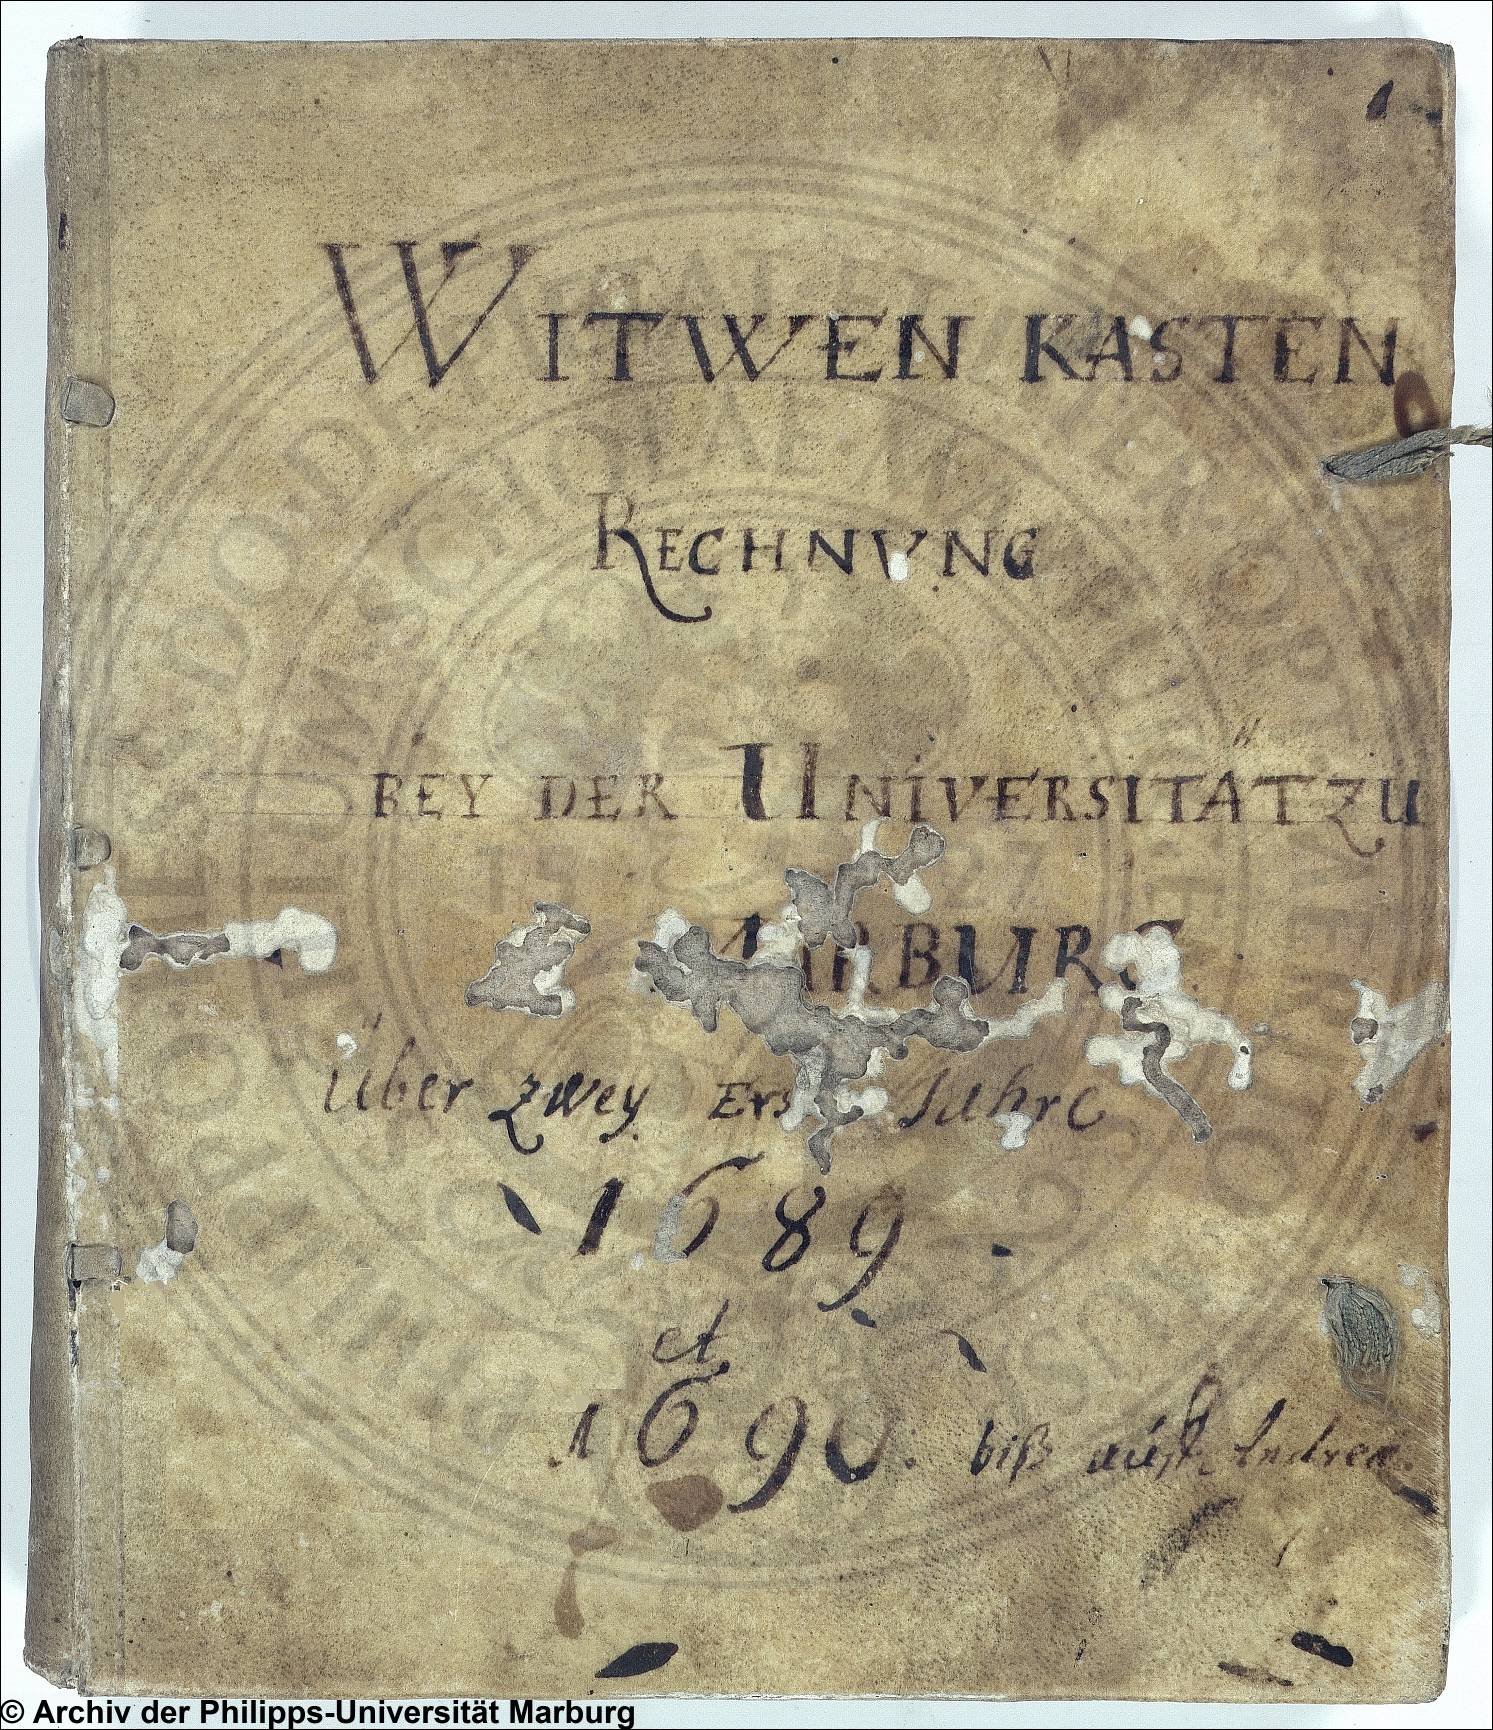 WITWEN KASTEN
RECHNVNG
BEY DER UNIVERSITÄT ZU
MARBURG
Über zwey Erste Jahre
1689
et
1690. biß auff Andreæ.
© Archiv der Philipps-Universität Marburg